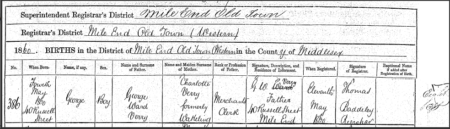 Superintendent Registrar's District Mile End Old Town
Registrar's District Mile End Old Town (Western)
1860. BIRTHS in the District of Mile End Old Town Western in the County of Middlesex
No. When Born. Name, if any. Sex. Name and Surname of Father. Name and Maiden Surname of Mother. Rank or Profession of Father. Signature, Description, and Residence of Informant. When Registered. Signature of Registrar. Baptismal Name, if added after Registration of Birth.
386 Fourth May 1860 40 Russell Street
George
Boy
George Ward Very
Charlotte Very formerly
Merchants Clerk
G W Very Father 40 Russell Street Mile End
May 1860
Thomas
Registrar